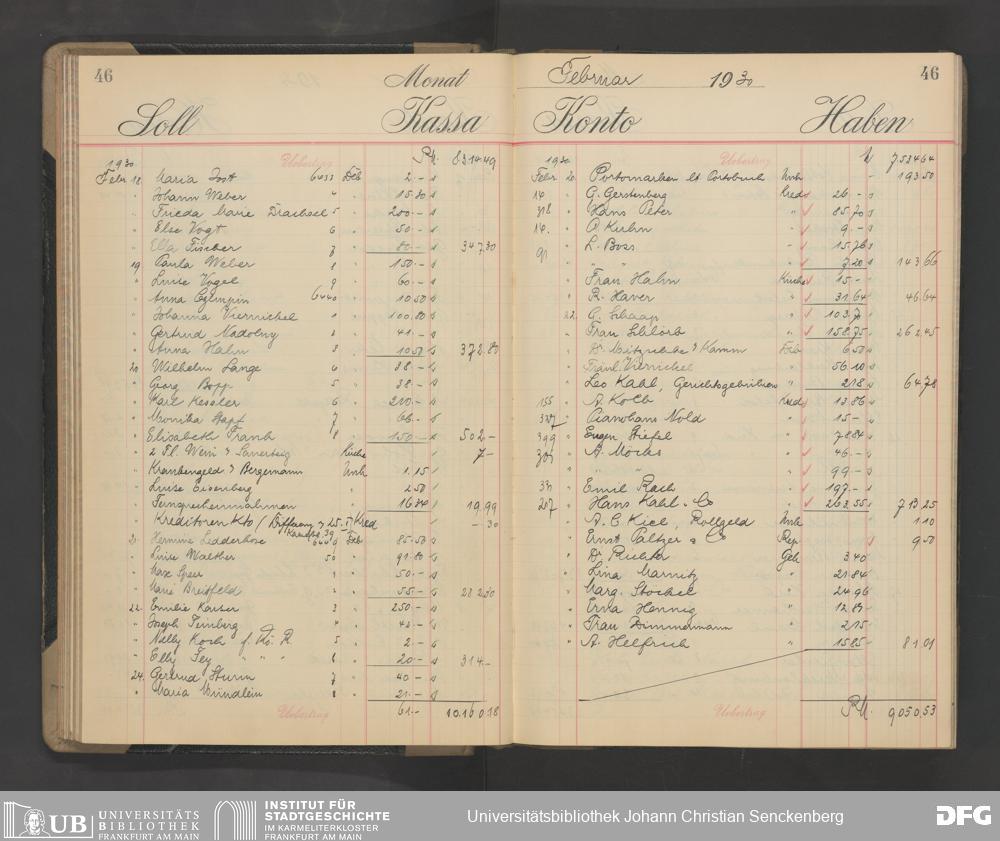 46
Monat
Soll
Kassa
Uebertrag RM. 8314.49
1930
Febr 18. Maria Jost 6433 Deb 2.-
" Johann Weber " " 15.30
" Frieda Marie Drachsel 5 " 200.-
" Else Vogt 6 " 50.-
" Ella Fischer 7 " 80.- 347.30
19 Paula Weber 8 " 150.-
" Luise Vogel 9 " 60.-
" Anna 6440 " 10.50
" Johanna Viernickel 1 " 100.80
" Gertrud Nadolny 2 " 41.-
" Anna Hahn 3 " 10.50 372.80
20 Wilhelm Lange 4 " 38.-
" Georg Bopp 5 " 38.-
" Karl Kessler 6 " 210.-
" Monika Stapf 7 " 66.-
" Elisabeth Frank 8 " 150.- 502.-
" 2 Fl. Wein Küche 7.-
" Krankengeld Bergemann Unk 1.15
" Luise Eisenberg " 2.50
" Ferngespreche " 16.34 19.99
" Kreditoren Kto / Differenz Kred -.30
21 Hermine Ledderhose Deb 85.50
" Luise Walther 50 " 91.80
" Max Speer 1 " 50.-
" Marie Breitfeld 2 " 55.- 282.50
22. Emilie Kaiser 3 " 250.-
" Joseph Feinberg 4 " 42.-
" Nelly Koch f. Kö. R. 5 " 2.-
" Elly Fey " " " 6 " 20.- 314.-
24. Gertrud Sturm 7 " 40.-
" Maria Mündlein 8 " 21.-
Uebertrag 61.- 10.160.38
Februar 1930
46
Konto
Haben
Uebertrag 7534.64
1930
Febr. 20. Portomarken lt Portobuch Unk 193.50
14 " G. Gerstenberg Kred 26.-
318 " Hans Peter " 85.70
14. " A Kuhn " 9.-
91 " L. Boss " 15.76
" " " " 7.20 143.66
" Frau Hahn Küche 15.-
" R. Haver " 31.64 46.64
22. C. Schaap " 103.7
" Frau Schlörb " 158.75 262.45
" Dr. & Kamm Deb 6.50
" Fräul. Viernickel " 56.10
" Leo Kahl, Gerichtsgebühren " 2.18 64.78
155 " A Koch Kred 13.86
327 " Pianohaus Nold " 15.-
399 " Eugen Stiefel " 78.84
303 " A. Möcks " 46.-
" " " " 99.-
331 " Emil Rach " 197.-
207 " Hans Kahl & Co " 263.55 713.25
" A. C Kiel, Rollgeld Unk 1.10
" Ernst Paltzer & Co Rep 9.50
" Dr. Richter Geh 3.40
" Lina Marnitz " 21.84
" Marg. Stöckel " 24.96
" Erna Hennig " 12.81
" Frau Zimmermann " 2.15
" A. Helfrich " 15.85 81.01
Uebertrag RM. 9050.53
UB UNIVERSITÄTS
BIBLIOTHEK
FRANKFURT AM MAIN
INSTITUT FÜR
STADTGESCHICHTE
IM KARMELITERKLOSTER
FRANKFURT AM MAIN
Universitätsbibliothek Johann Christian Senckenberg
DFG